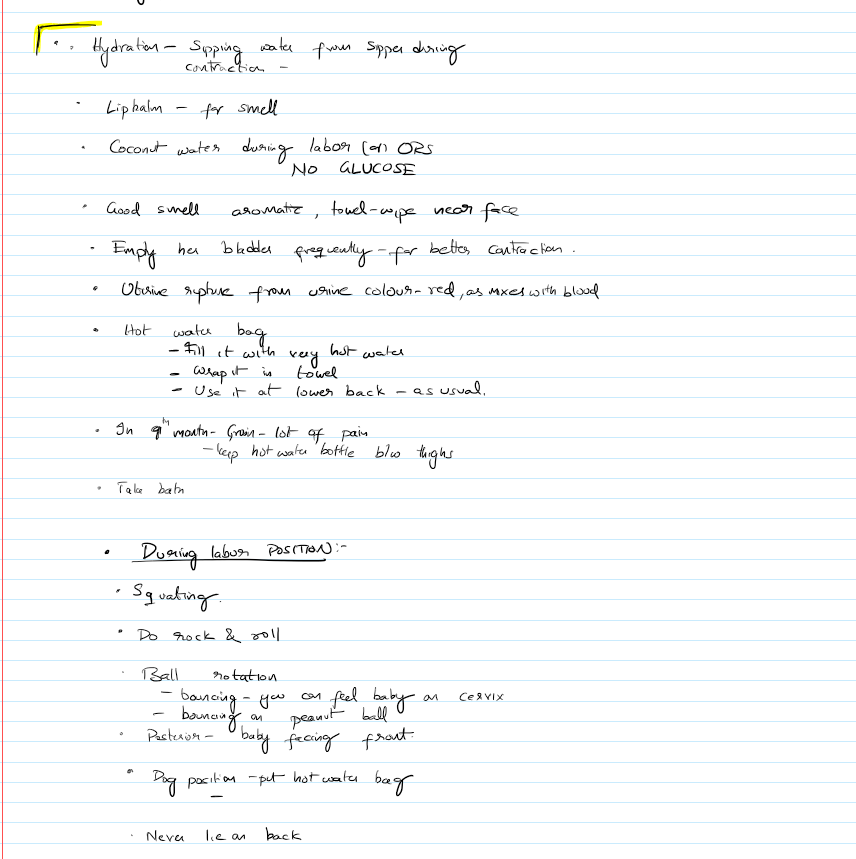 Hydration - Sipping water from sipper during
contraction -
Lip balm - for smell
Coconut water during labor (or) ORS
NO GLUCOSE
Good smell aromatic, towel-wipe near face
Empty her bladder frequently - for better contraction.
Uterine rupture from urine colour - red, as mixes with blood
Hot water bag
- Fill it with very hot water
- Wrap it in towel
- Use it at lower back - as usual.
In 9th month - Groin - lot of pain
- keep hot water bottle b/w thighs
Take bath
During labor POSITION:-
Squating.
Do rock & roll
Ball rotation
- bouncing - you can feel baby on cervix
- bouncing on peanut ball
Posterior - baby facing front.
Dog position - put hot water bag
Never lie on back